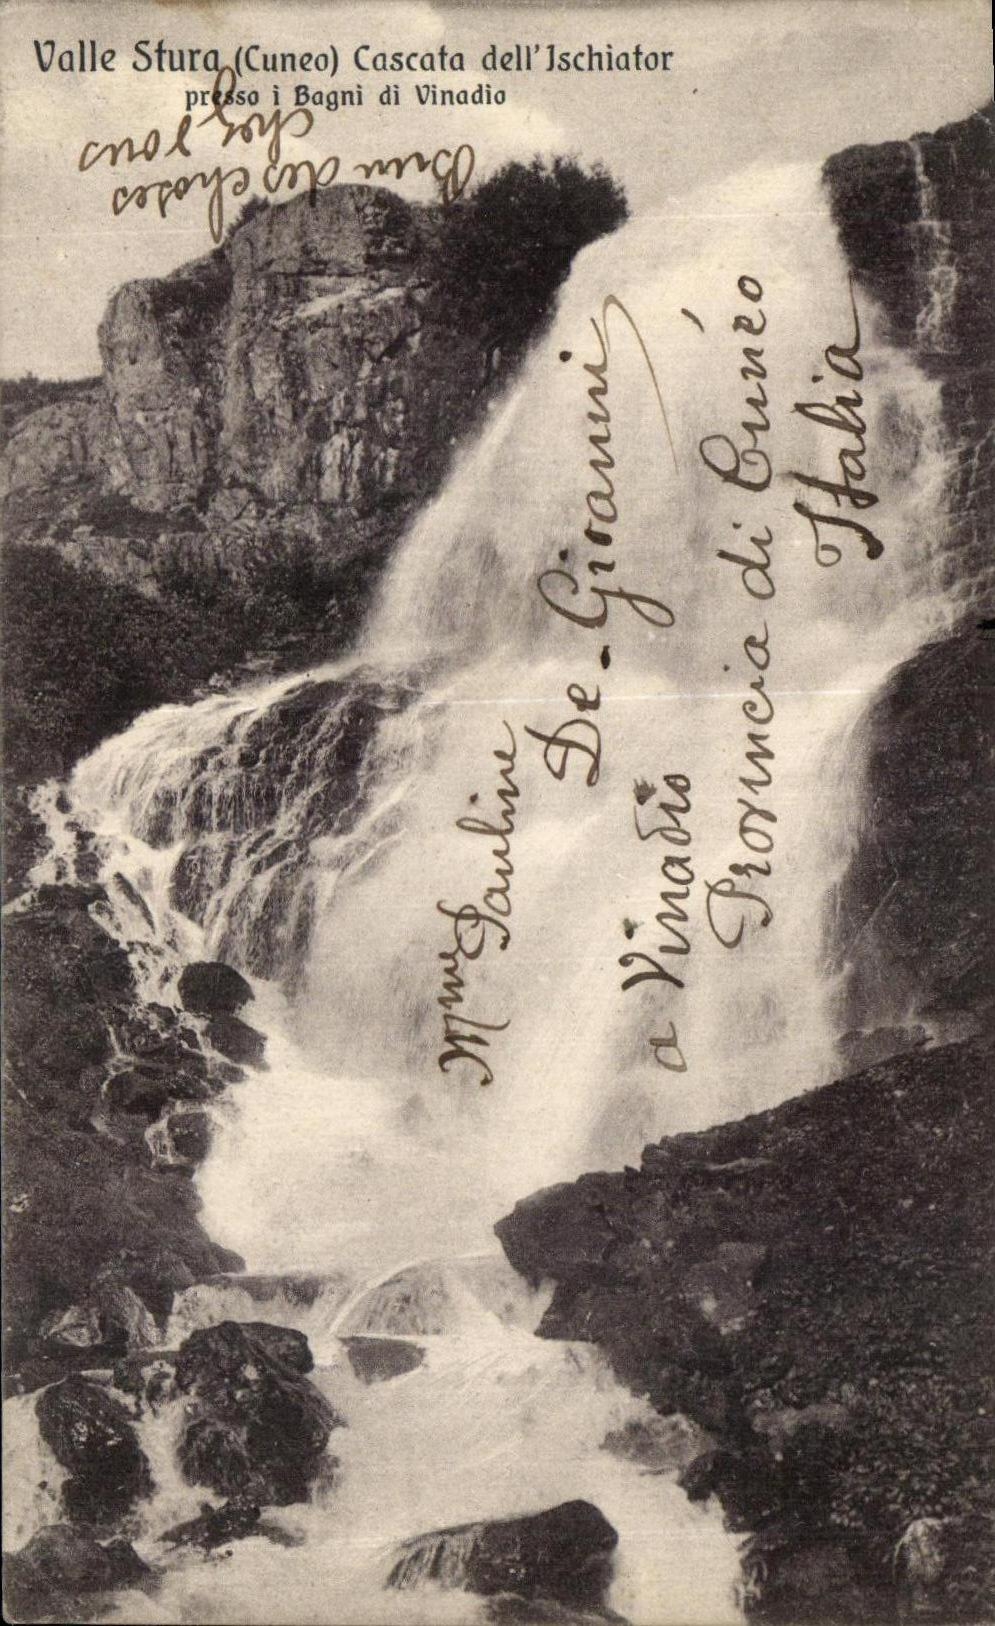 Valle Stura (Cuneo) Cascata dell'Ischiator
presso i Bagni di Vinadio
Bien des choses
chez vous
Mme Pauline
De-Giovanni
a Vinadio
Provincia di Cunéo
Italia